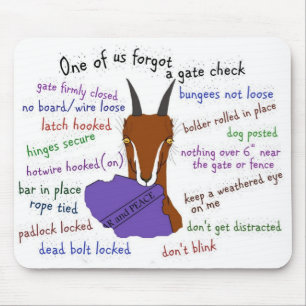 One of us forgot
a gate check
gate firmly closed
bungees not loose
no board/wire loose
bolder rolled in place
latch hooked
dog posted
hinges secure
nothing over 6" near
the gate or fence
hotwire hooked(on)
bar in place
keep a weathered eye
on me
rope tied
R and PEACE
padlock locked
don't get distracted
dead bolt locked
don't blink